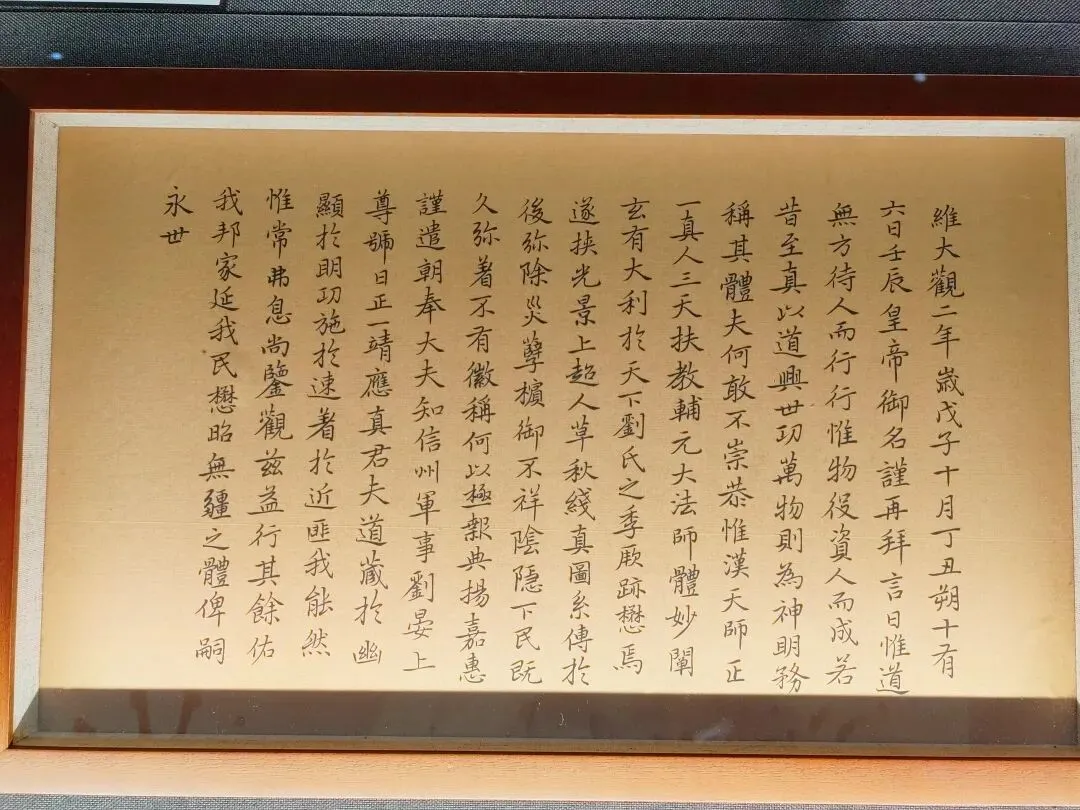 維大觀二年歲戊子十月丁丑朔十有
六日壬辰皇帝御名謹再拜言曰惟道
無方待人而行行惟物役資人而成若
昔至真以道興世功萬物則為神明務
稱其體夫何敢不崇恭惟漢天師正
一真人三天扶教輔元大法師體妙闡
玄有大利於天下劉氏之季厥跡懋焉
遂挾光景上超人草秋綫真圖系傳於
後弥除災孽檳御不祥陰隱下民既
久弥着不有徽稱何以極報典揚嘉惠
謹遣朝奉大夫知信州軍事劉晏上
尊號曰正一靖應真君夫道蔵於幽
顯於明功施於速着於近匪我能然
惟常弗息尚鑒觀兹益行其餘佑
我邦家延我民懋昭無疆之體俾嗣
永世